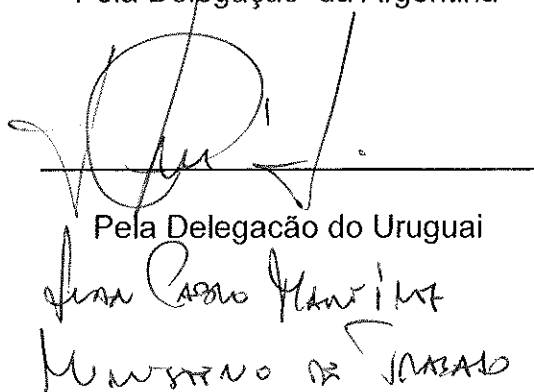 Pela Delegação da Argentina
Pela Delegacão do Uruguai
Juan Pablo Martínez
Ministerio de Trabajo